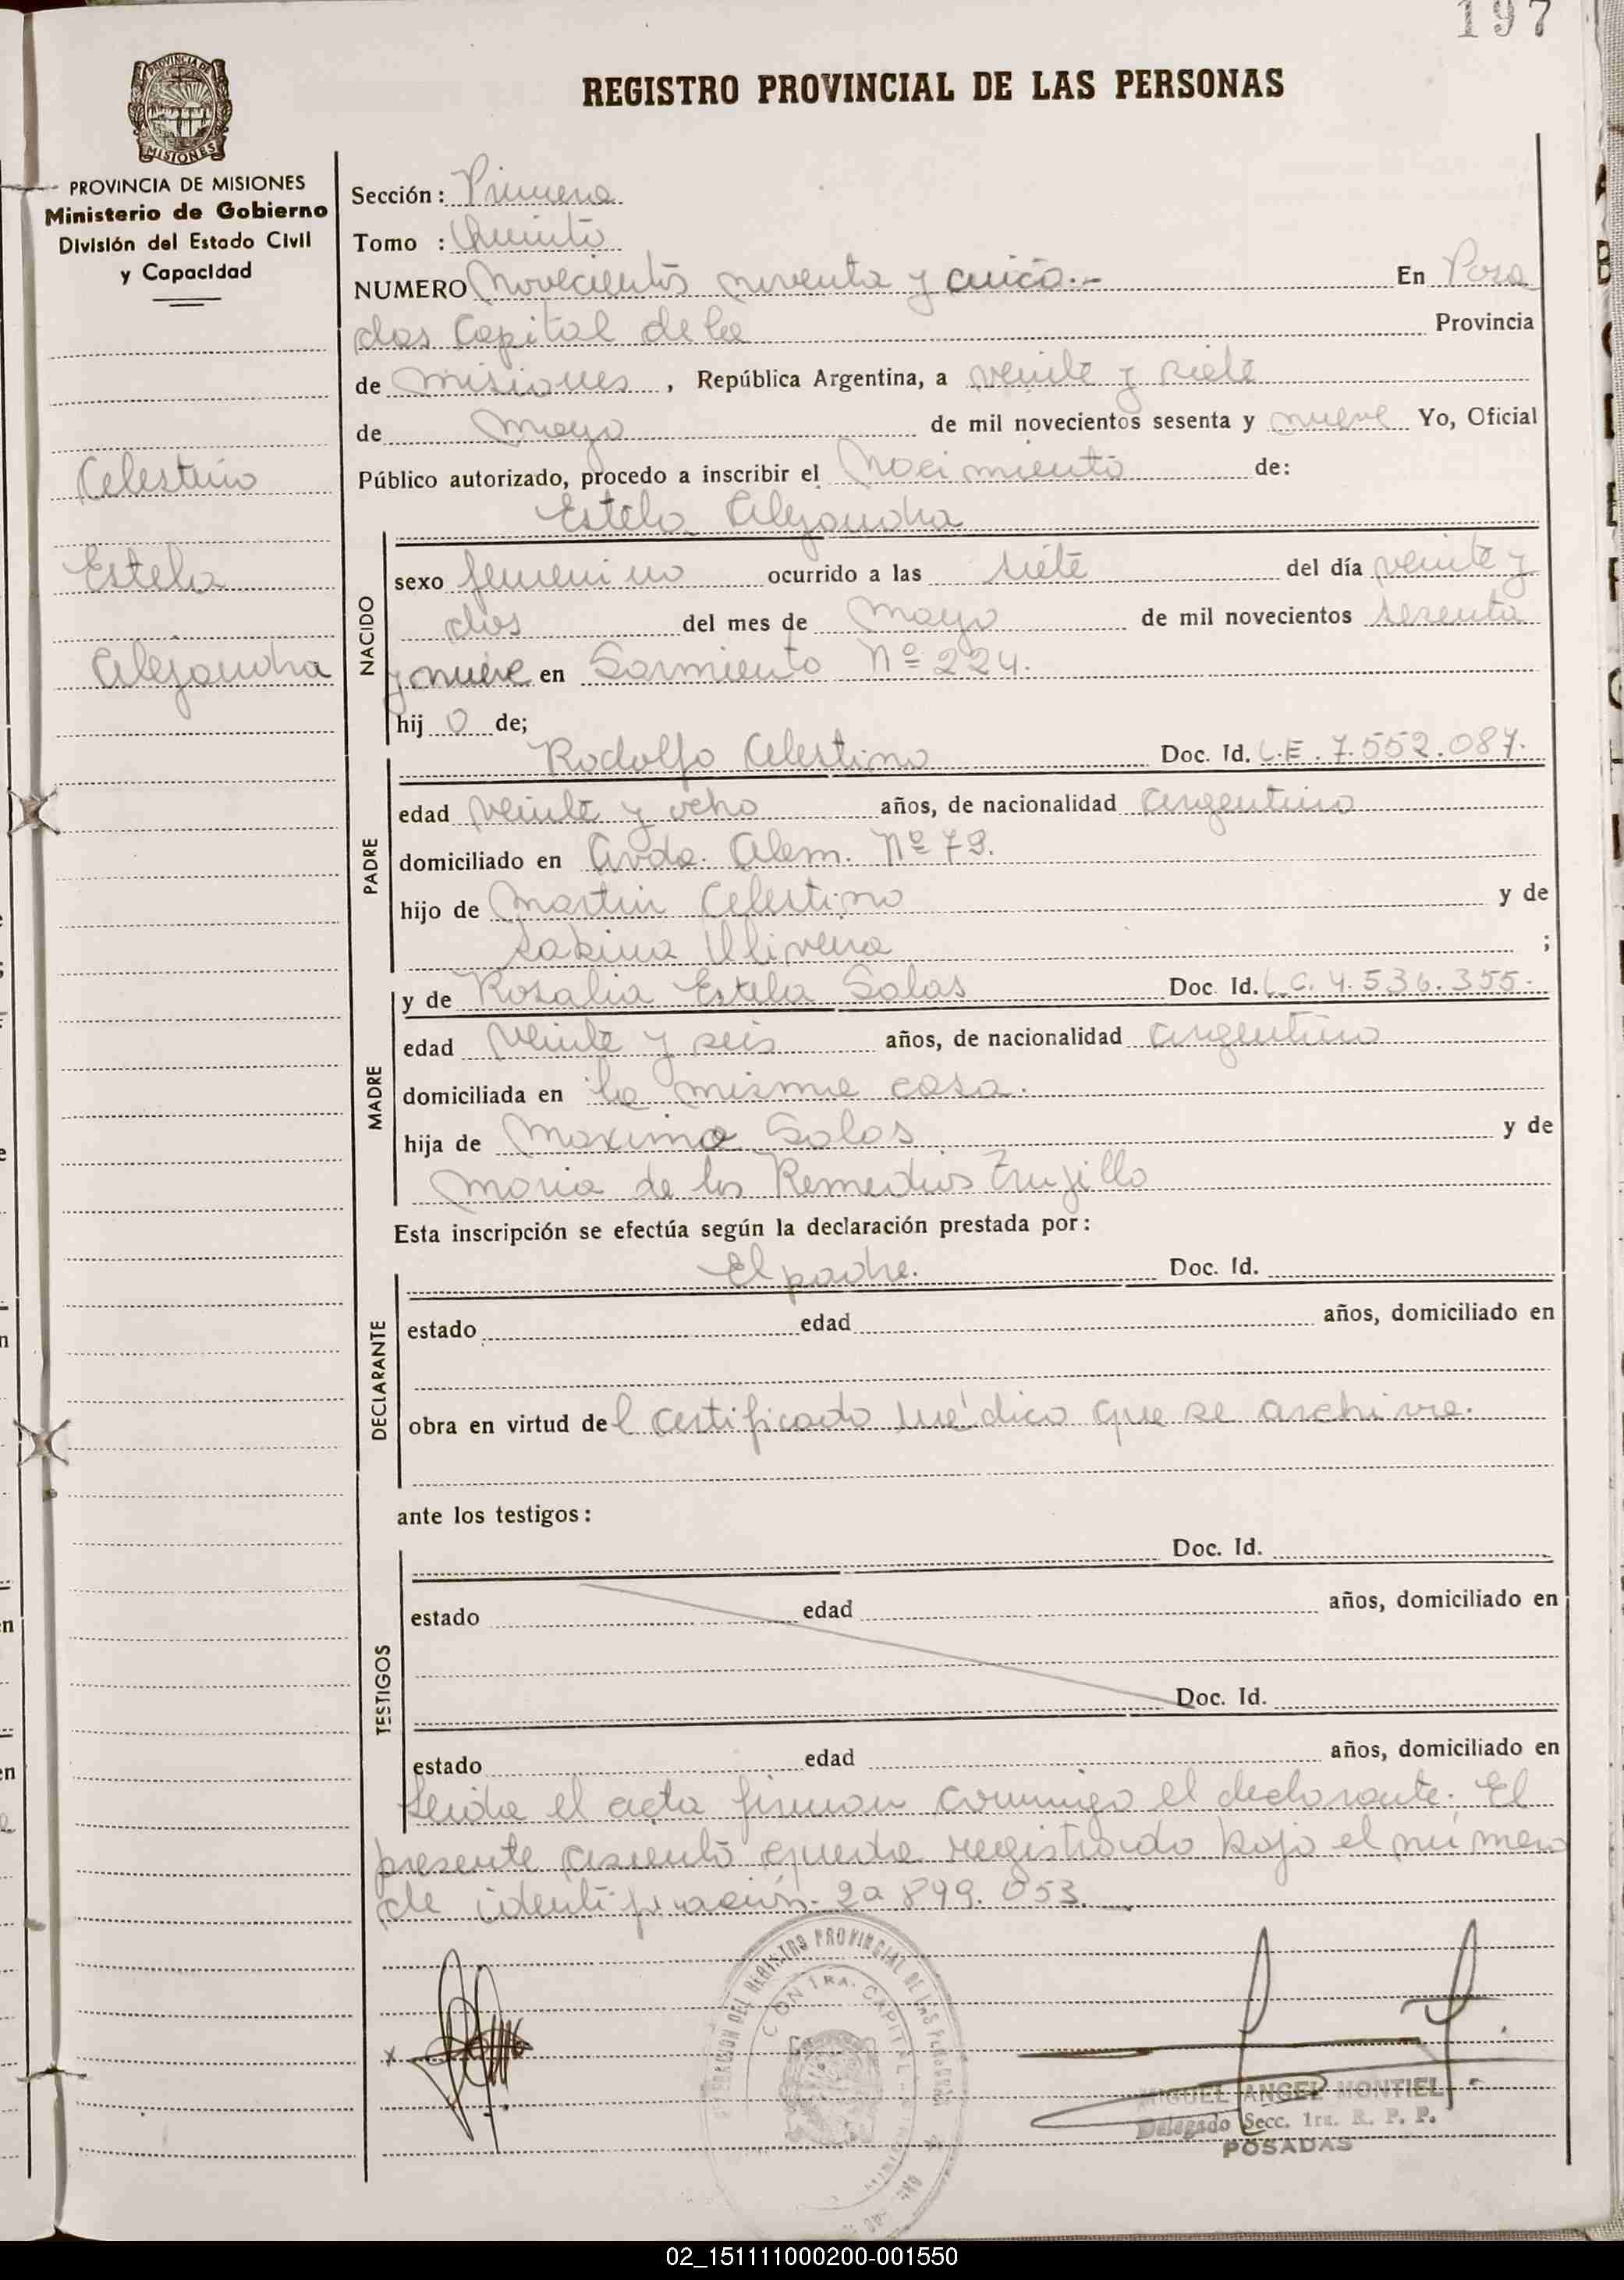 197
REGISTRO PROVINCIAL DE LAS PERSONAS
PROVINCIA DE
MISIONES
PROVINCIA DE MISIONES
Ministerio de Gobierno
División del Estado Civil
y Capacidad
Celestino
Estela
Alejandra
Sección: Primera
Tomo : Quinto
NUMERO Novecientos noventa y cinco.- En Posa
das Capital de la Provincia
de Misiones, República Argentina, a veinte y siete
de Mayo de mil novecientos sesenta y nueve Yo, Oficial
Público autorizado, procedo a inscribir el Nacimiento de:
Estela Alejandra
NACIDO
sexo femenino ocurrido a las siete del día veinte y
dos del mes de Mayo de mil novecientos sesenta
y nueve en Sarmiento Nº 224.
hij o de;
PADRE
Rodolfo Celestino Doc. Id. L.E. 7.552.087.
edad veinte y ocho años, de nacionalidad argentino
domiciliado en Avda. Alem. Nº 79.
hijo de Martin Celestino y de
Sabina Olivera ;
MADRE
y de Rosalia Estela Salas Doc. Id. L.C. 4.536.355.
edad veinte y seis años, de nacionalidad argentino
domiciliada en la misma casa.
hija de Maximo Salas y de
Maria de los Remedios Trujillo
Esta inscripción se efectúa según la declaración prestada por:
DECLARANTE
El padre. Doc. Id.
estado edad años, domiciliado en
obra en virtud del certificado médico que se archiva.
ante los testigos:
TESTIGOS
Doc. Id.
estado edad años, domiciliado en
Doc. Id.
estado edad años, domiciliado en
Leida el acta firman conmigo el declarante. El
presente asiento queda registrado bajo el número
de identificación. 20 899.053.
DEL REGISTRO PROVINCIAL DE LAS PERSONAS
CONTRA. CAPITAL
x
MIGUEL ANGEL MONTIEL
Delegado Secc. 1ra. R. P. P.
POSADAS
02_151111000200-001550